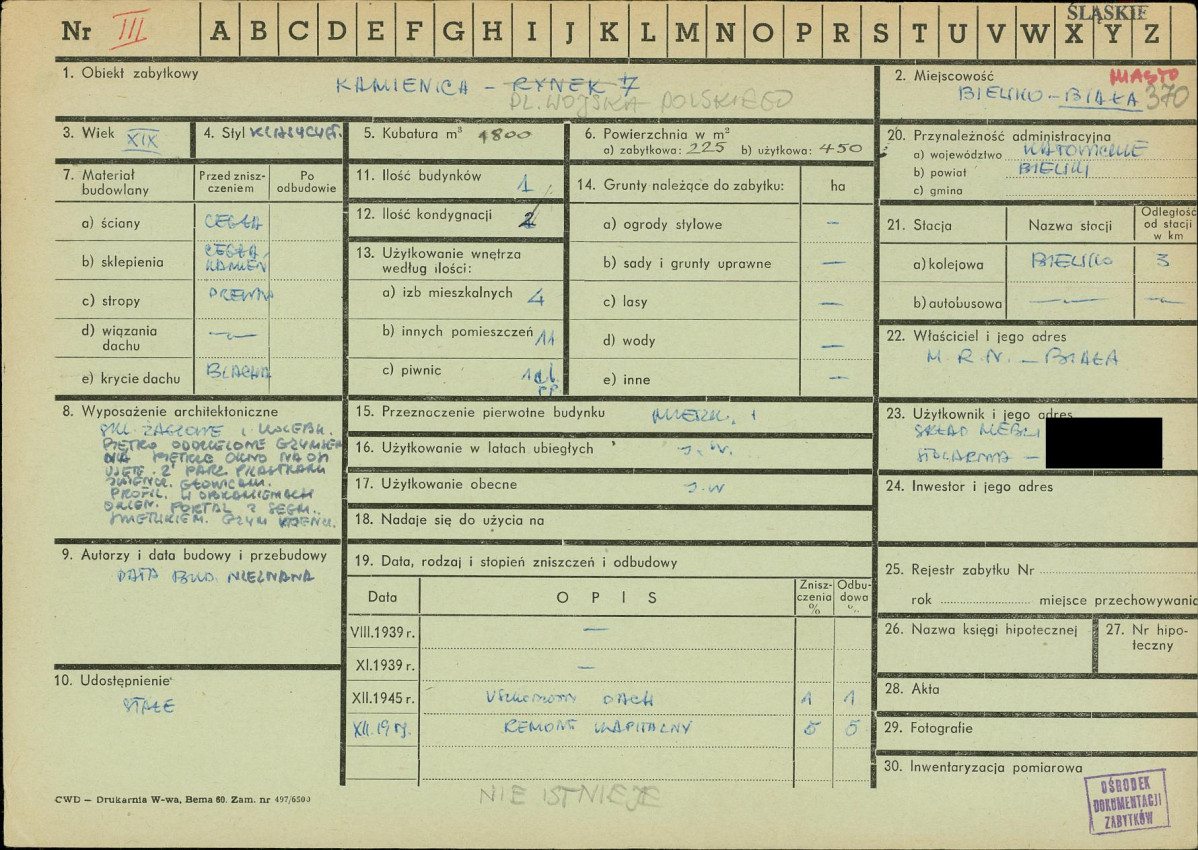 ŚLĄSKIE
Nr III A B C D E F G H I J K L M N O P R S T U V W X Y Z
1. Obiekt zabytkowy
KAMIENICA – RYNEK 7
PL. WOJSKA POLSKIEGO
2. Miejscowość MIASTO
BIELSKO – BIAŁA 370
3. Wiek XIX
4. Styl KLASYCYST.
5. Kubatura m³ 1800
6. Powierzchnia w m²
a) zabytkowa: 225 b) użytkowa: 450
20. Przynależność administracyjna
a) województwo KATOWICKIE
b) powiat BIELSKI
c) gmina
7. Materiał budowlany
Przed znisz-
czeniem
Po
odbudowie
a) ściany CEGŁA
b) sklepienia CEGŁA, KAMIEŃ
c) stropy DREWN
d) wiązania
dachu —
e) krycie dachu BLACHA
11. Ilość budynków 1
12. Ilość kondygnacji 2
13. Użytkowanie wnętrza
według ilości:
a) izb mieszkalnych 4
b) innych pomieszczeń 11
c) piwnic
14. Grunty należące do zabytku: ha
a) ogrody stylowe —
b) sady i grunty uprawne —
c) lasy —
d) wody —
e) inne —
21. Stacja
Nazwa stacji
Odległość
od stacji
w km
a) kolejowa BIELSKO 3
b) autobusowa — —
22. Właściciel i jego adres
M. R. N. – BIAŁA
8. Wyposażenie architektoniczne
SKL. ŻAGLOWE I KOLEBK.
PIĘTRO ODDZIELONE GZYMSEM
NA PIĘTRZE OKNO NA OSI
UJĘTE 2 PARZ. PILASTRAMI
ZWIEŃCZ. GŁOWICAMI.
PROFIL. W OBRAMIENIACH
OKIEN. PORTAL Z SEGM.
GZYM
15. Przeznaczenie pierwotne budynku MIESZK. i
16. Użytkowanie w latach ubiegłych J. W.
17. Użytkowanie obecne J. W
18. Nadaje się do użycia na
23. Użytkownik i jego adres
SKŁAD MEBLI
STOLARNIA –
24. Inwestor i jego adres
9. Autorzy i data budowy i przebudowy
DATA BUD. NIEZNANA
10. Udostępnienie
STAŁE
19. Data, rodzaj i stopień zniszczeń i odbudowy
Data
OPIS
Znisz-
czenia
%
Odbu-
dowa
%
VIII.1939 r. —
XI.1939 r. —
XII.1945 r. USZKODZONY DACH 1 1
XII.19 r. REMONT KAPITALNY 5 5
25. Rejestr zabytku Nr
rok miejsce przechowywania
26. Nazwa księgi hipotecznej
27. Nr hipo-
teczny
28. Akta
29. Fotografie
30. Inwentaryzacja pomiarowa
CWD — Drukarnia W-wa, Bema 60. Zam. nr 497/6500
NIE ISTNIEJE
OŚRODEK
DOKUMENTACJI
ZABYTKÓW